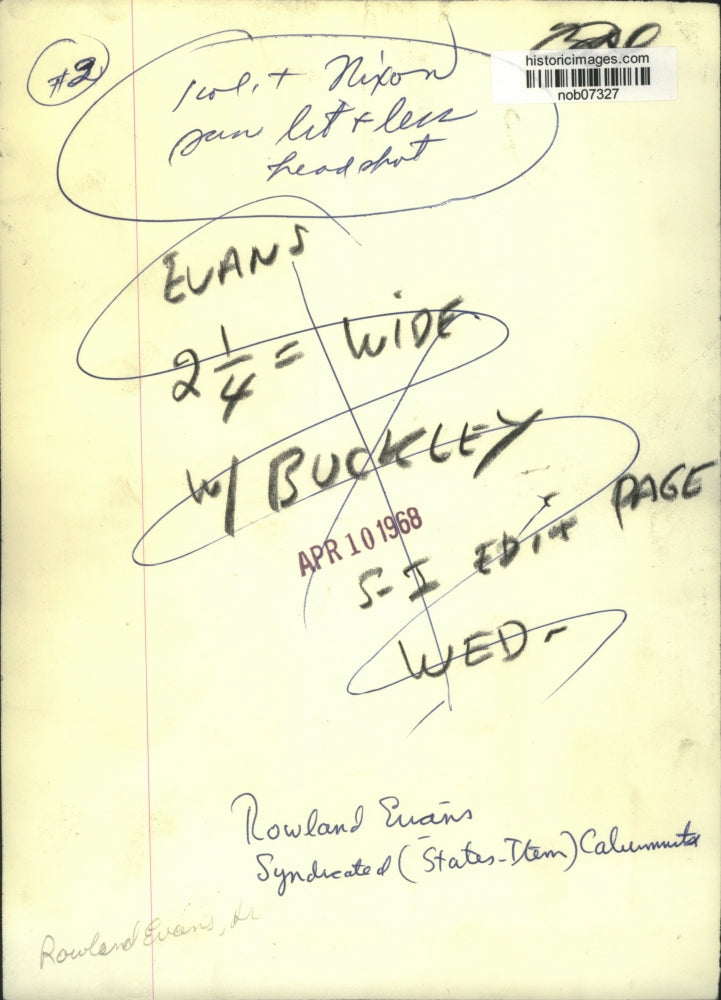 #2
historicimages.com
nob07327
1 col. + Nixon
same lit + less
headshot
EVANS
2 1/4 = WIDE
W/ BUCKLEY
APR 10 1968
S-I EDIT PAGE
WED-
Rowland Evans
Syndicated (States-Item) Columnist
Rowland Evans, Jr